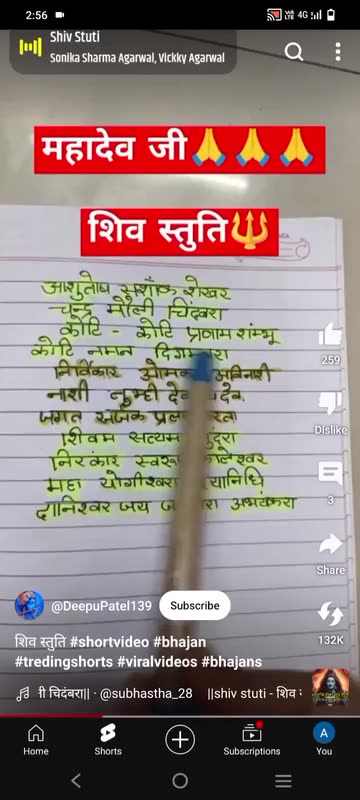 2:56
4G
Shiv Stuti
Sonika Sharma Agarwal, Vickky Agarwal
महादेव जी🙏🙏🙏
शिव स्तुति🔱
आशुतोष सशाँक शेखर
चन्द्र मौली चिदंबरा
कोटि - कोटि प्रणाम शंम्भू
कोटि नमन दिगम्बरा
निर्विकार ओमकार अविनाशी
नाशी तुम्ही
जगत सर्जक
शिवम सत्यम सुंदरा
निरंकार स्वरूप
महा योगीश्वरा दयानिधि
दानिश्वर जय अभयंकरा
259
Dislike
3
Share
132K
@DeepuPatel139
Subscribe
शिव स्तुति #shortvideo #bhajan
#tredingshorts #viralvideos #bhajans
चिदंबरा|| · @subhastha_28 ||shiv stuti - शिव
Home
Shorts
Subscriptions
A
You